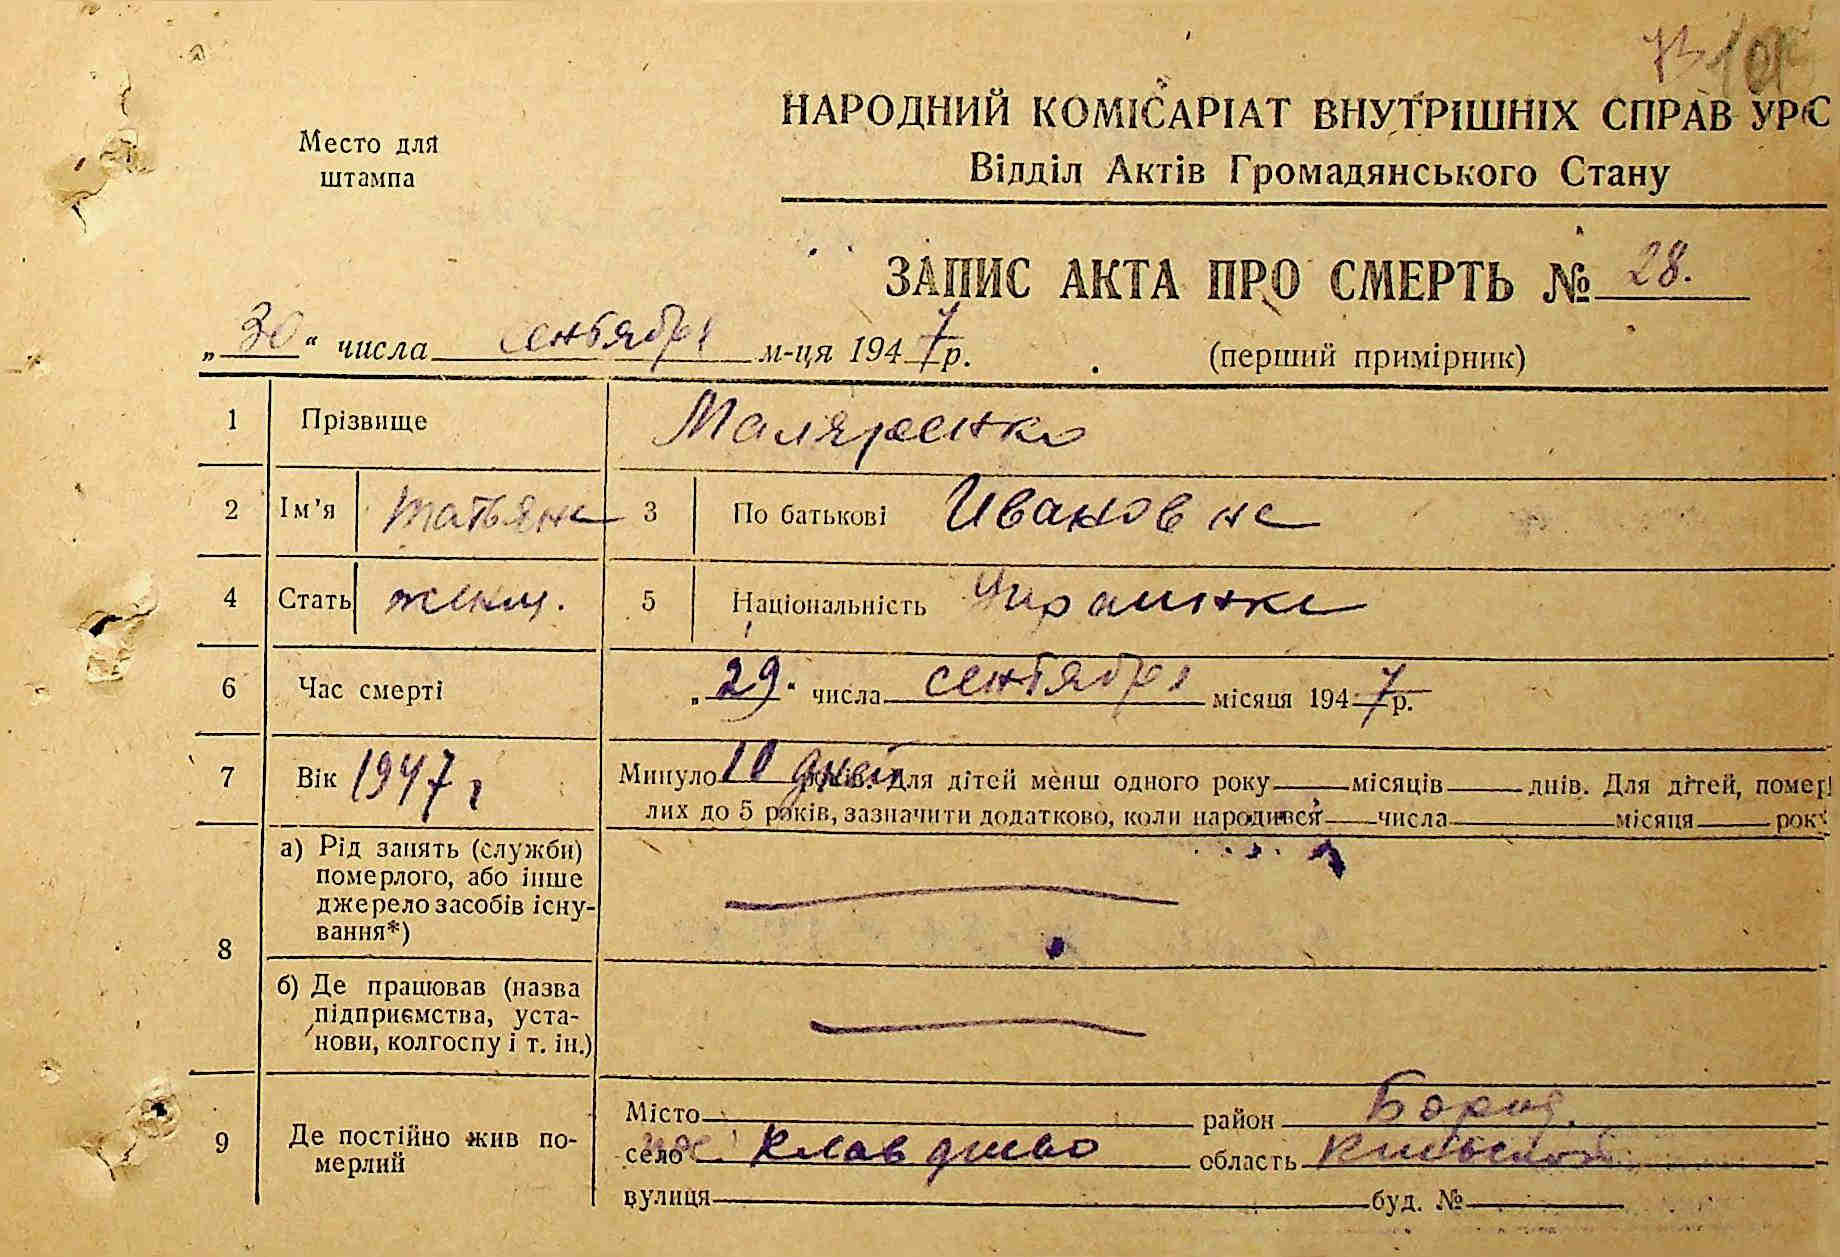 73
Место для
штампа
НАРОДНИЙ КОМІСАРІАТ ВНУТРІШНІХ СПРАВ УРС
Відділ Актів Громадянського Стану
ЗАПИС АКТА ПРО СМЕРТЬ № 28.
„30“ числа сентября м-ця 1947 р. (перший примірник)
1 Прізвище Маляренко
2 Ім'я Татьяна 3 По батькові Ивановна
4 Стать женщ. 5 Національність Украинка
6 Час смерті „29.“ числа сентября місяця 1947 р.
7 Вік 1947 г Минуло 10 дней років. Для дітей менш одного року місяців днів. Для дітей, помер
лих до 5 років, зазначити додатково, коли народився числа місяця року
8 а) Рід занять (служби)
померлого, або інше
джерело засобів існу-
вання*)
б) Де працював (назва
підприємства, уста-
нови, колгоспу і т. ін.)
9 Де постійно жив по-
мерлий
Місто район Бород.
село Клавдиево область Киевской
вулиця буд. №